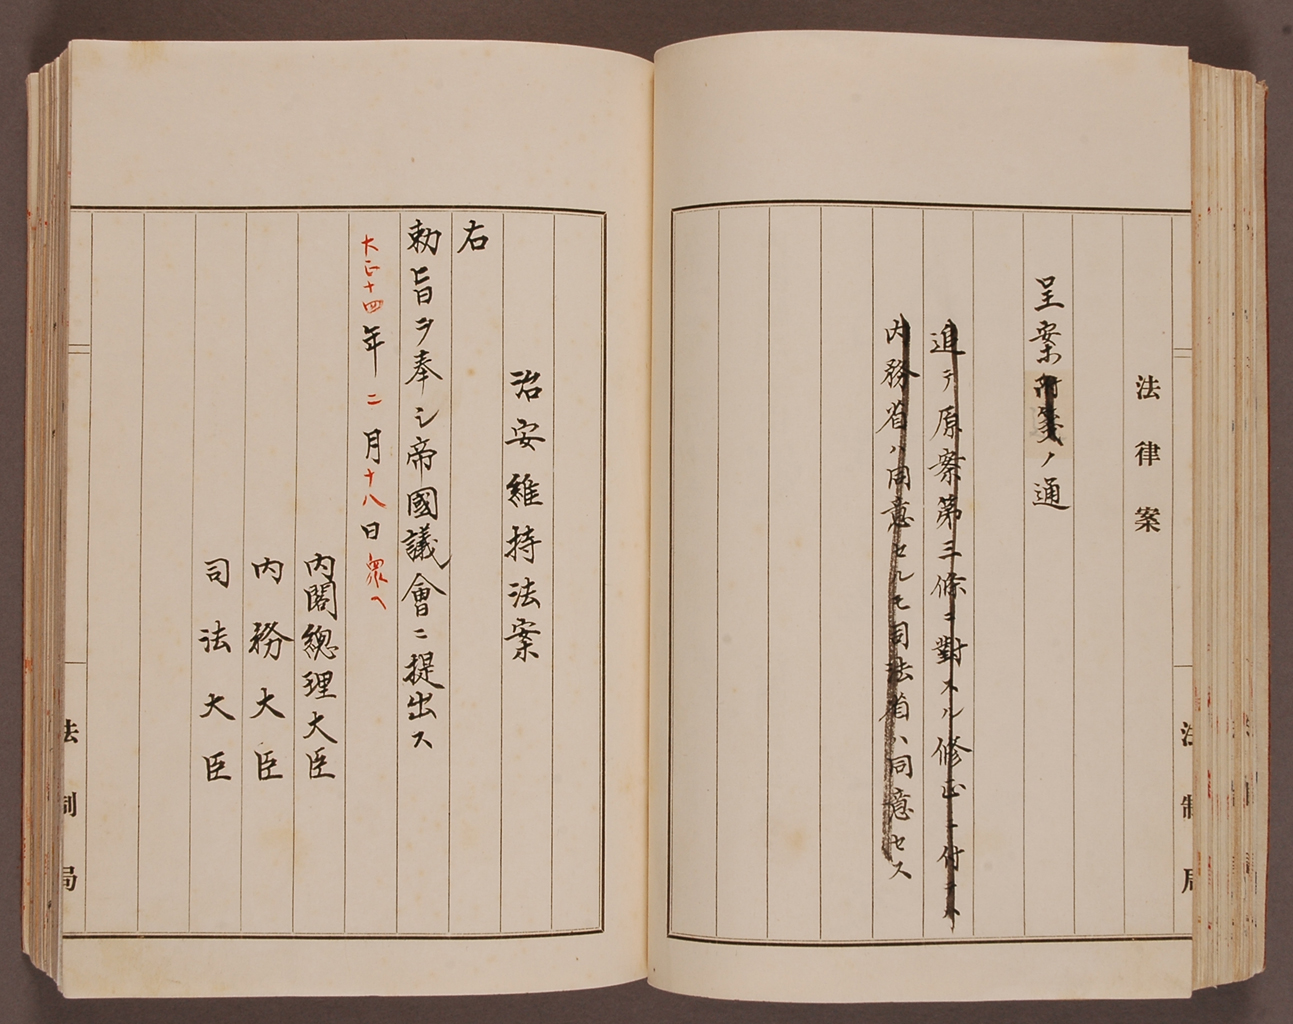 法律案
呈案附箋ノ通
追テ原案第三條ニ對スル修正ニ付テハ
内務省ハ同意セルモ司法省ハ同意セス
法制局
治安維持法案
右
勅旨ヲ奉シ帝國議會ニ提出ス
大正十四年二月十八日衆へ
内閣總理大臣
内務大臣
司法大臣
法制局